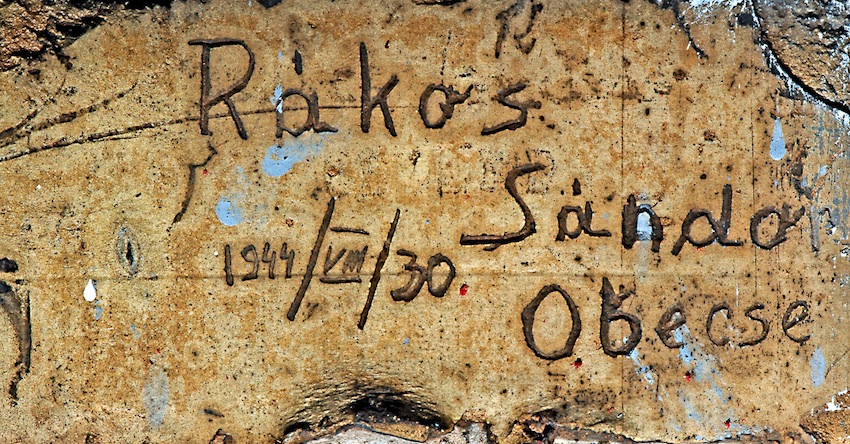 Rákos
Sándor
1944/VIII/30
Obecse